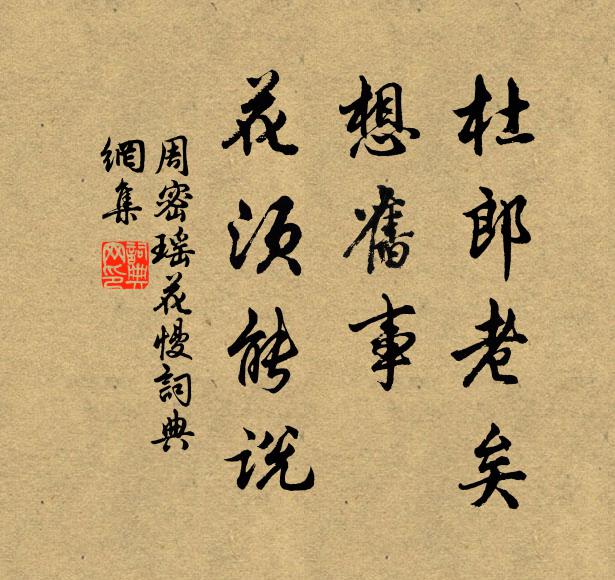 杜郎老矣
想舊事
花須能說
周密瑶花慢詞典
網集
詞典网印